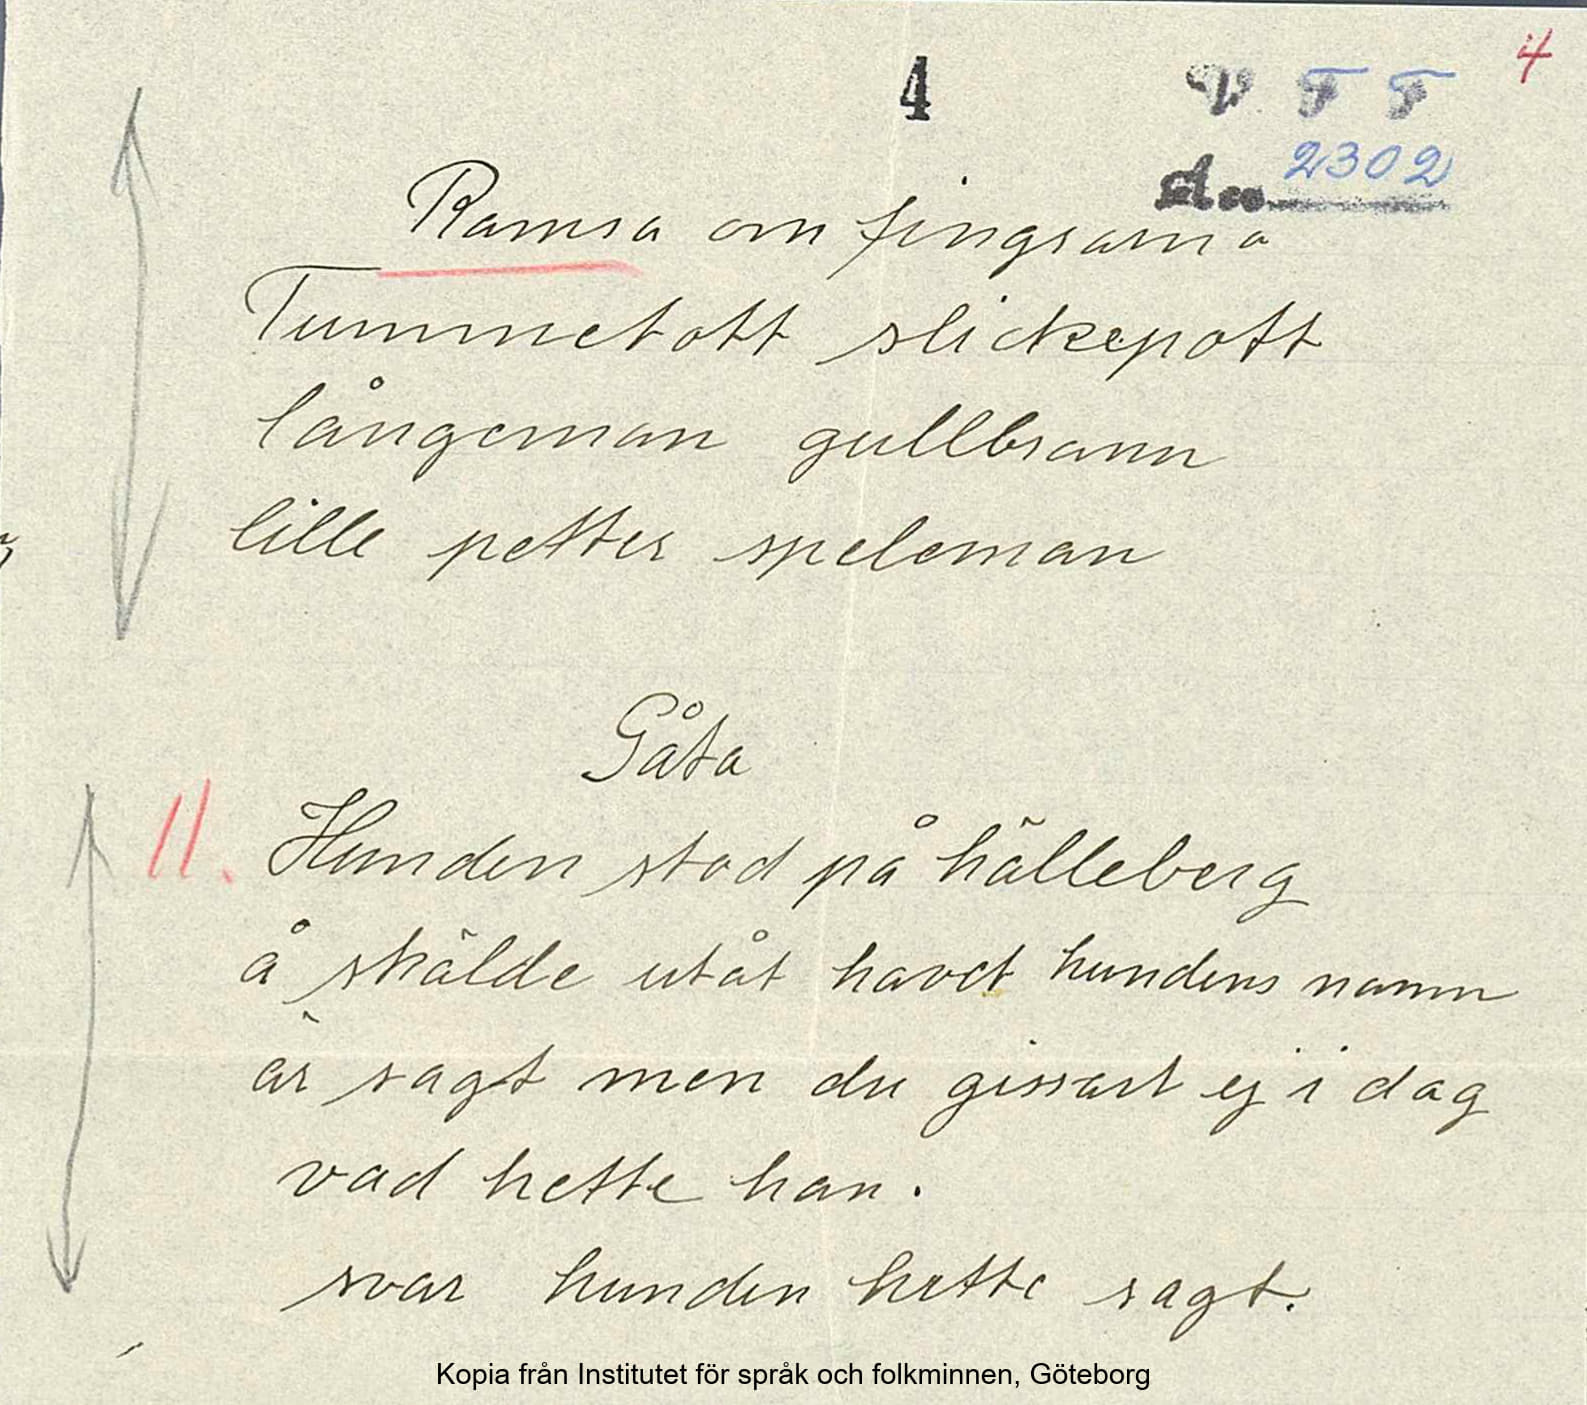 4
4
V F F
2302
Ramsa om fingrarna
Tummetott slickepott
långeman gullbrann
lille petter speleman
Gåta
11. Hunden stod på hälleberg
å skälde utåt havet hundens namn
är sagt men du gissart ej i dag
vad hette han.
svar hunden hette sagt.
Kopia från Institutet för språk och folkminnen, Göteborg